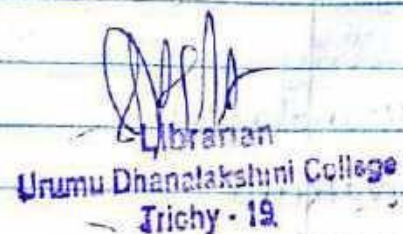 Librarian
Urumu Dhanalakshmi College
Trichy - 19.